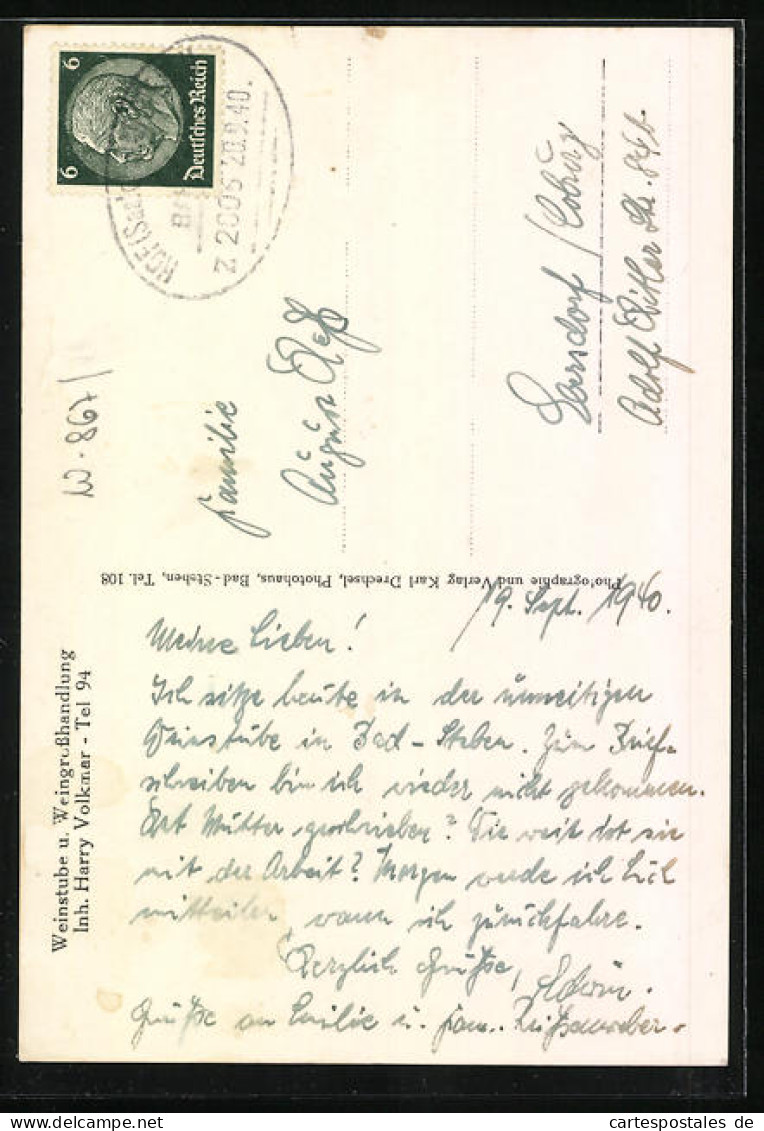 Weinstube u. Weingroßhandlung
Inh. Harry Volkmar - Tel 94
19. Sept. 1940.
Meine Lieben!
Ich sitze heute in der
Weinstube in Bad-Steben. Zum Brief-
schreiben bin ich wieder nicht gekommen.
Hat Mutter geschrieben? Wie weit ist sie
mit der Arbeit? Morgen werde ich Euch
mitteilen, wann ich zurückfahre.
Herzliche Grüsse, Edwin.
Grüsse an Emilie u. Fam.
Photographie und Verlag Karl Drechsel, Photohaus, Bad-Steben, Tel. 108
6 6
Deutsches Reich
HOF (SAALE)
BA
Z 2006 20.9.40.
W-867/
Familie
August
/Coburg
Adolf Hitler Str.
cartespostales de